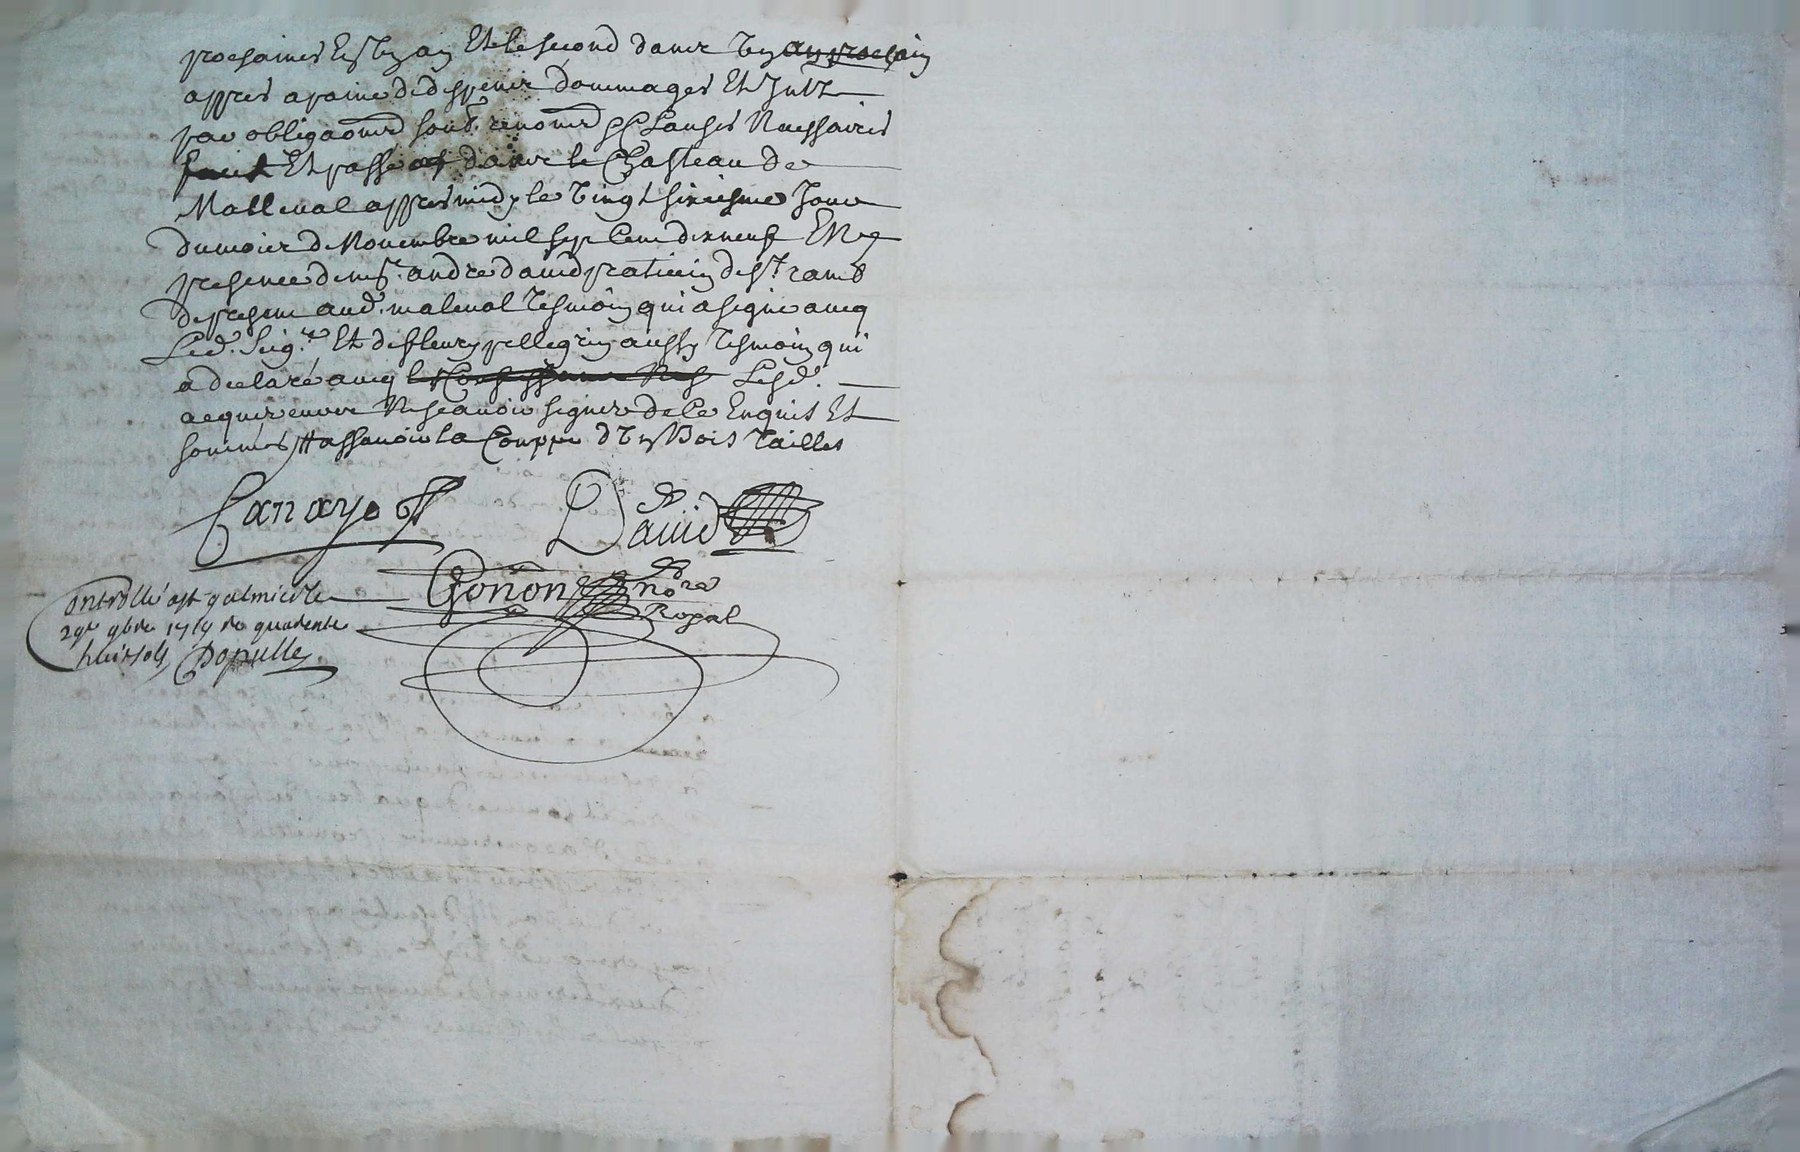 prochaines En Un an Et le second dans Un an prochain
appres a paine de despens dommages Et Intz
par obligaones soub. renones Clauses Necessaires
fait Et passé dans le Chasteau de
Malleval appres midy le Vingt sixiesme Jour
du mois de Novembre mil sept Cent dix neuf En
presence de me. andre david praticien de st. ramb
de present aud. maleval Tesmoin qui a signé avecq
Led. Seigr. Et de fleury pellegrin aussy Tesmoin qui
a declaré avecq Lesd.
acquereurs Ne scavoir signer de Ce Enquis Et
sommes # assavoir la Couppe d'Un Bois Tailles
Canaye
David
Gonon nore
Royal
Controllé a st galmier le
29e 9bre 1719 re quarente
huit sols Dopulle